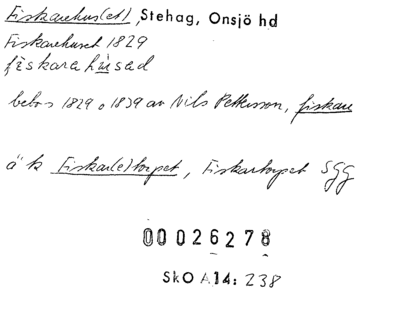 Fiskarehus(et), Stehag, Onsjö hd
Fiskarehuset 1829
fiskarahused
bebos 1829 o 1839 av Nils Pettersson, fiskare
ä k Fiskar(e)torpet, Fiskartorpet SGG
00026278
SkO A14: 238